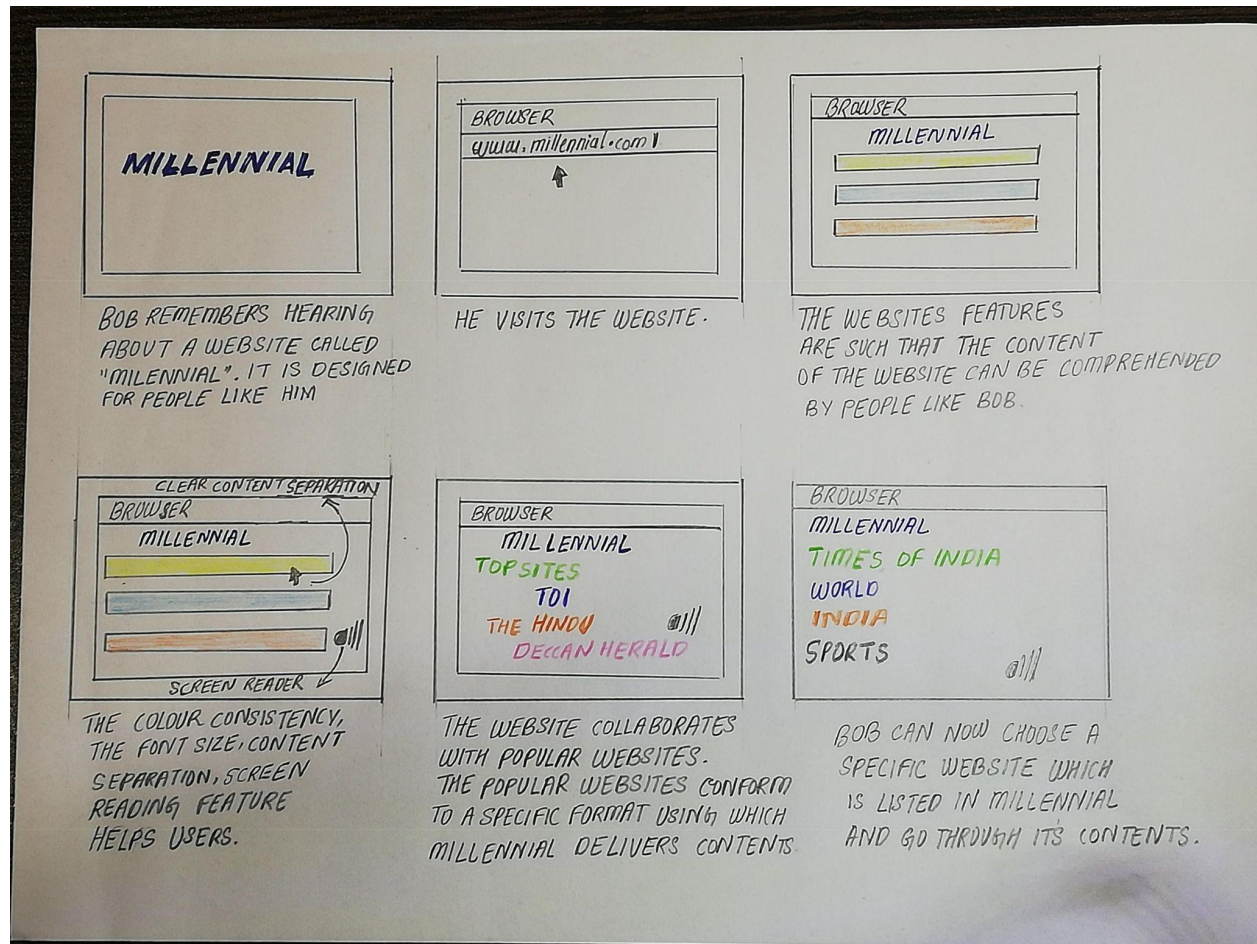 MILLENNIAL
BOB REMEMBERS HEARING
ABOUT A WEBSITE CALLED
"MILENNIAL". IT IS DESIGNED
FOR PEOPLE LIKE HIM
BROWSER
www.millennial.com
HE VISITS THE WEBSITE.
BROWSER
MILLENNIAL
THE WEBSITES FEATURES
ARE SUCH THAT THE CONTENT
OF THE WEBSITE CAN BE COMPREHENDED
BY PEOPLE LIKE BOB.
CLEAR CONTENT SEPARATION
BROWSER
MILLENNIAL
SCREEN READER
THE COLOUR CONSISTENCY,
THE FONT SIZE, CONTENT
SEPARATION, SCREEN
READING FEATURE
HELPS USERS.
BROWSER
MILLENNIAL
TOP SITES
TOI
THE HINDU
DECCAN HERALD
THE WEBSITE COLLABORATES
WITH POPULAR WEBSITES.
THE POPULAR WEBSITES CONFORM
TO A SPECIFIC FORMAT USING WHICH
MILLENNIAL DELIVERS CONTENTS
BROWSER
MILLENNIAL
TIMES OF INDIA
WORLD
INDIA
SPORTS
BOB CAN NOW CHOOSE A
SPECIFIC WEBSITE WHICH
IS LISTED IN MILLENNIAL
AND GO THROUGH IT'S CONTENTS.